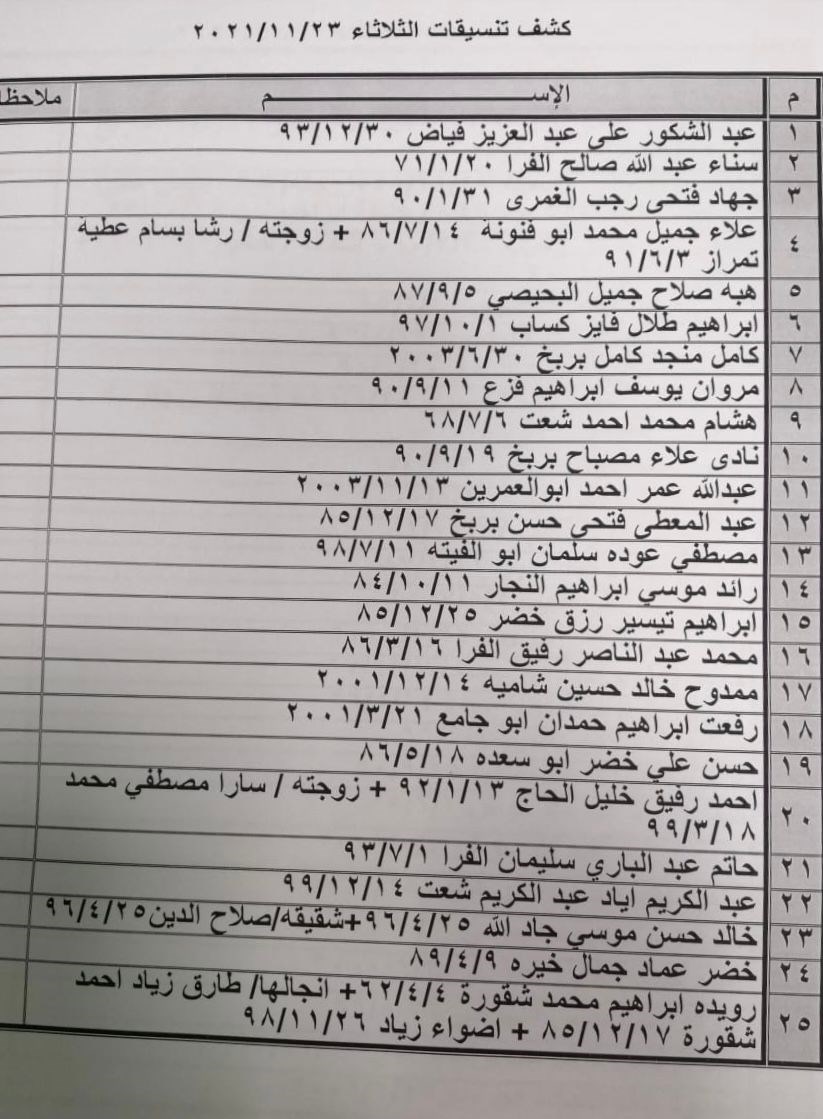 كشف تنسيقات الثلاثاء ٢٠٢١/١١/٢٣
م الإســــــــم ملاحظا
١ عبد الشكور على عبد العزيز فياض ٩٣/١٢/٣٠
٢ سناء عبد الله صالح الفرا ٧١/١/٢٠
٣ جهاد فتحى رجب الغمرى ٩٠/١/٣١
٤ علاء جميل محمد ابو فنونة ٨٦/٧/١٤ + زوجته / رشا بسام عطية
تمراز ٩١/٦/٣
٥ هبه صلاح جميل البحيصي ٨٧/٩/٥
٦ ابراهيم طلال فايز كساب ٩٧/١٠/١
٧ كامل منجد كامل بربخ ٢٠٠٣/٦/٣٠
٨ مروان يوسف ابراهيم قزع ٩٠/٩/١١
٩ هشام محمد احمد شعت ٦٨/٧/٦
١٠ نادى علاء مصباح بربخ ٩٠/٩/١٩
١١ عبدالله عمر احمد ابوالعمرين ٢٠٠٣/١١/١٣
١٢ عبد المعطى فتحى حسن بربخ ٨٥/١٢/١٧
١٣ مصطفي عوده سلمان ابو الفيته ٩٨/٧/١١
١٤ رائد موسي ابراهيم النجار ٨٤/١٠/١١
١٥ ابراهيم تيسير رزق خضر ٨٥/١٢/٢٥
١٦ محمد عبد الناصر رفيق الفرا ٨٦/٣/١٦
١٧ ممدوح خالد حسين شاميه ٢٠٠١/١٢/١٤
١٨ رفعت ابراهيم حمدان ابو جامع ٢٠٠١/٣/٢١
١٩ حسن علي خضر ابو سعده ٨٦/٥/١٨
٢٠ احمد رفيق خليل الحاج ٩٢/١/١٣ + زوجته / سارا مصطفي محمد
٩٩/٣/١٨
٢١ حاتم عبد الباري سليمان الفرا ٩٣/٧/١
٢٢ عبد الكريم اياد عبد الكريم شعت ٩٩/١٢/١٤
٢٣ خالد حسن موسي جاد الله ٩٦/٤/٢٥+شقيقه/صلاح الدين٩٦/٤/٢٥
٢٤ خضر عماد جمال خيره ٨٩/٤/٩
٢٥ رويده ابراهيم محمد شقورة ٦٢/٤/٤+ انجالها/ طارق زياد احمد
شقورة ٨٥/١٢/١٧ + اضواء زياد ٩٨/١١/٢٦